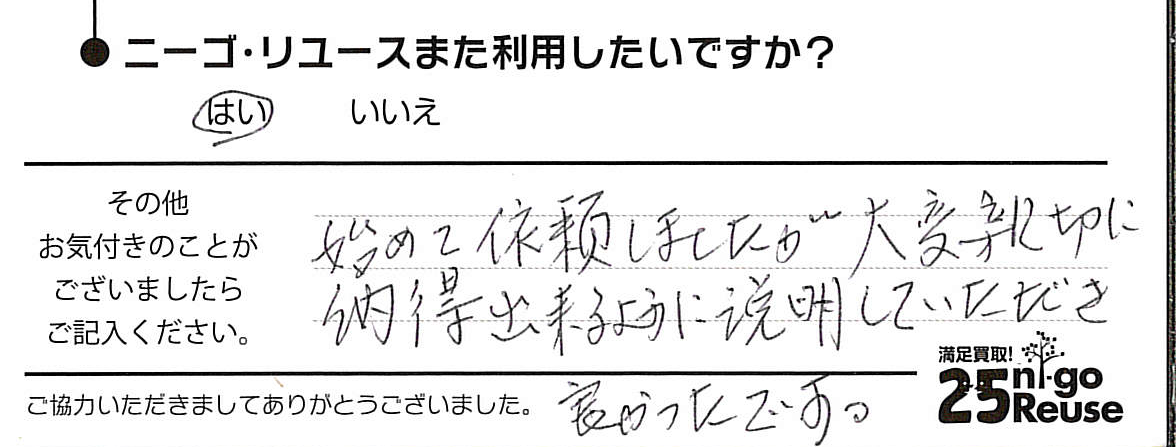 ニーゴ・リユースまた利用したいですか?
はい いいえ
その他
お気付きのことが
ございましたら
ご記入ください。
始めて依頼しましたが大変親切に
納得出来るように説明していただき
良かったです。
ご協力いただきましてありがとうございました。
満足買取!
25 ni-go
Reuse